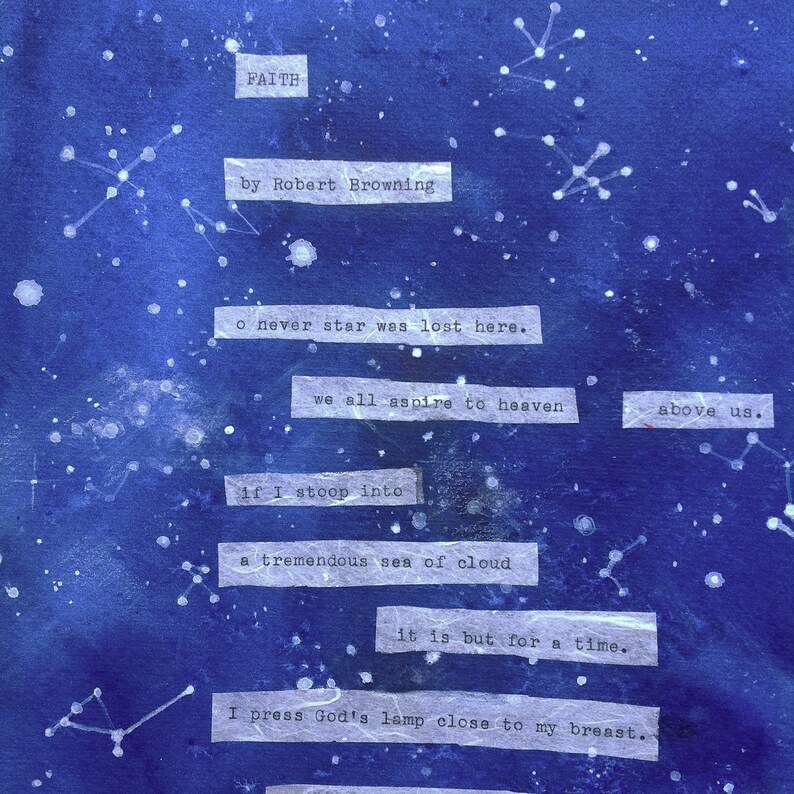 FAITH
by Robert Browning
o never star was lost here.
we all aspire to heaven above us.
if I stoop into
a tremendous sea of cloud
it is but for a time.
I press God's lamp close to my breast.